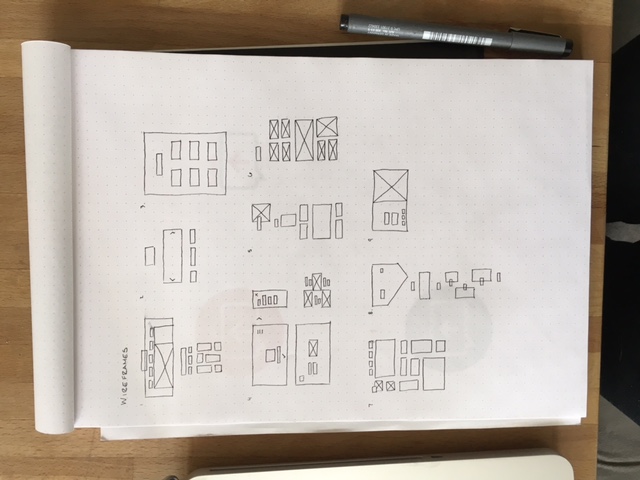 WIREFRAMES
1.
2.
3.
4.
5.
6.
7.
8.
9.